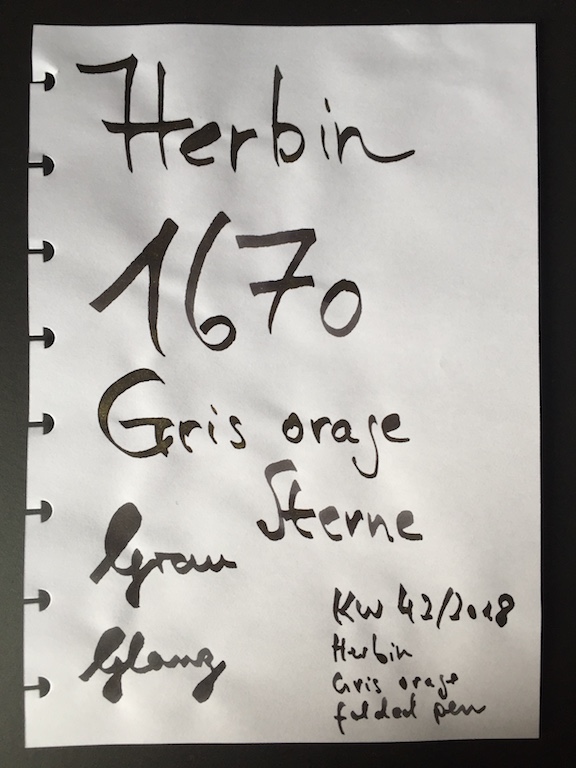 Herbin
1670
Gris orage
Sterne
Grau
Glanz
KW 42/2018
Herbin
Gris orage
folded pen